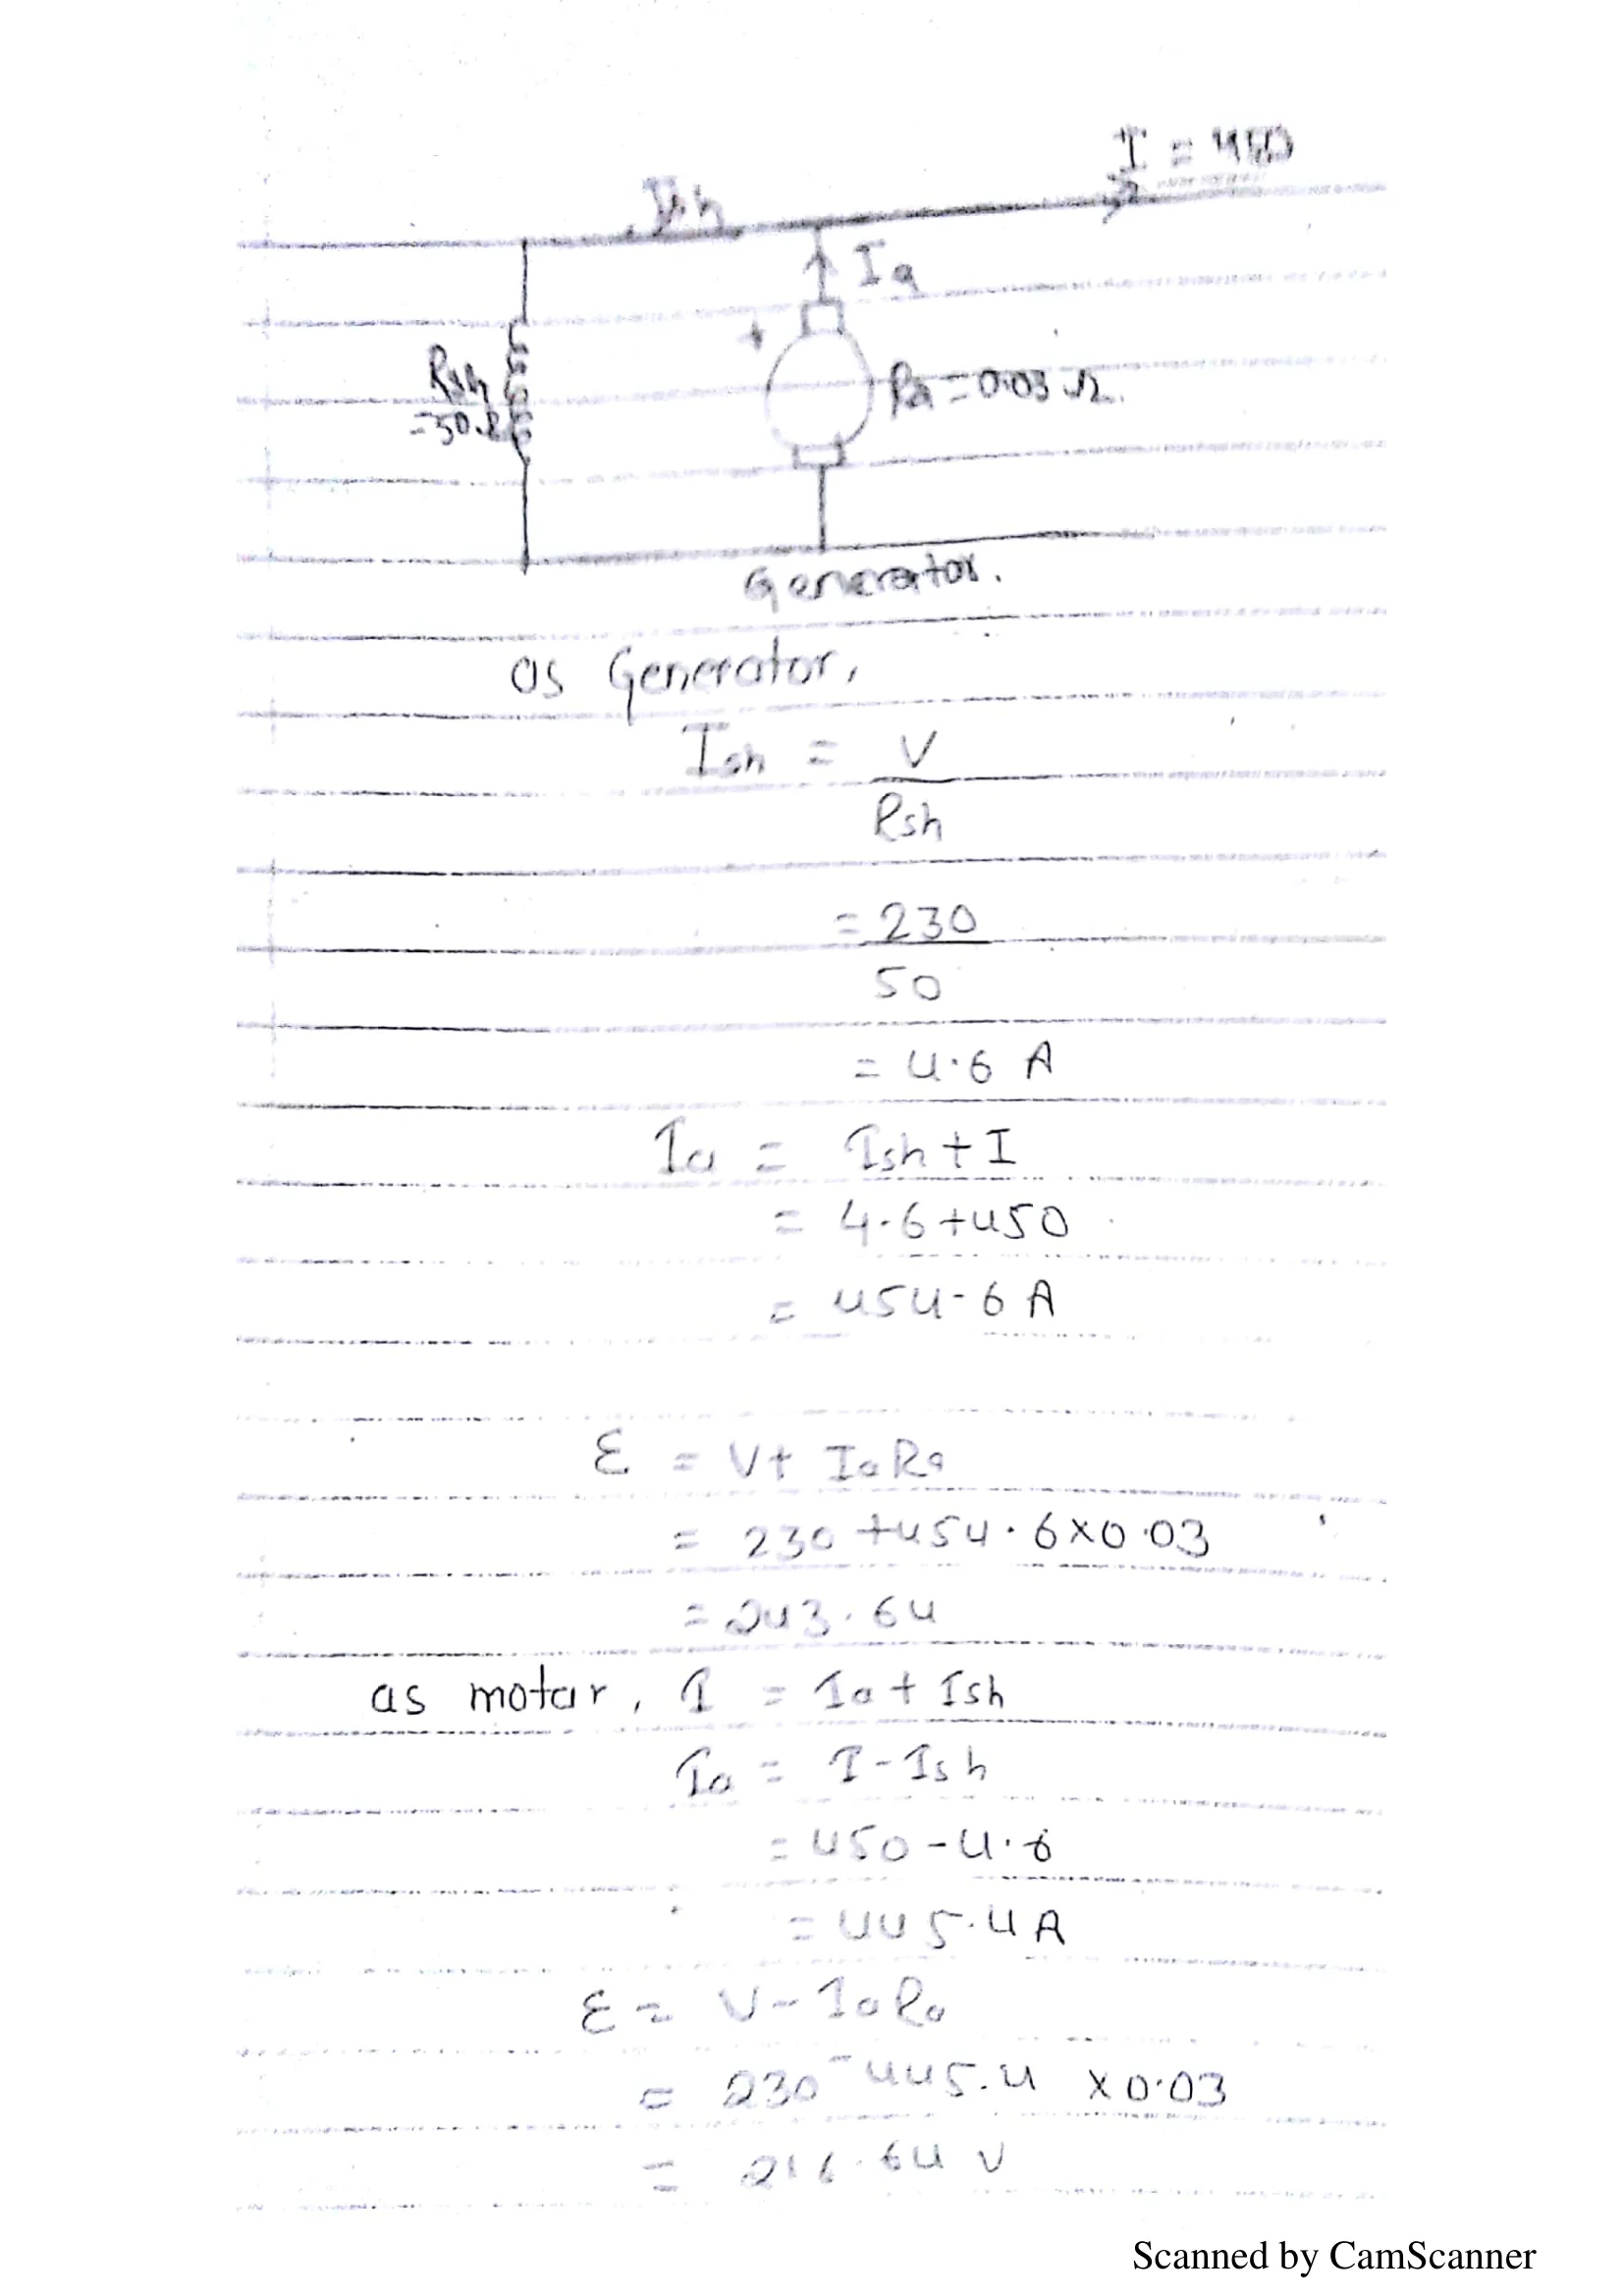 I = 450
Ish
Ia
+
Rsh
=50Ω
Ra = 0.03 Ω.
Generator.
as Generator,
Ish = V
Rsh
= 230
50
= 4.6 A
Ia = Ish + I
= 4.6 + 450
= 454.6 A
ε = V + IaRa
= 230 + 454.6 × 0.03
= 243.64
as motar, I = Ia + Ish
Ia = I - Ish
= 450 - 4.6
= 445.4 A
ε = V - IaRa
= 230 - 445.4 × 0.03
= 216.64 V
Scanned by CamScanner